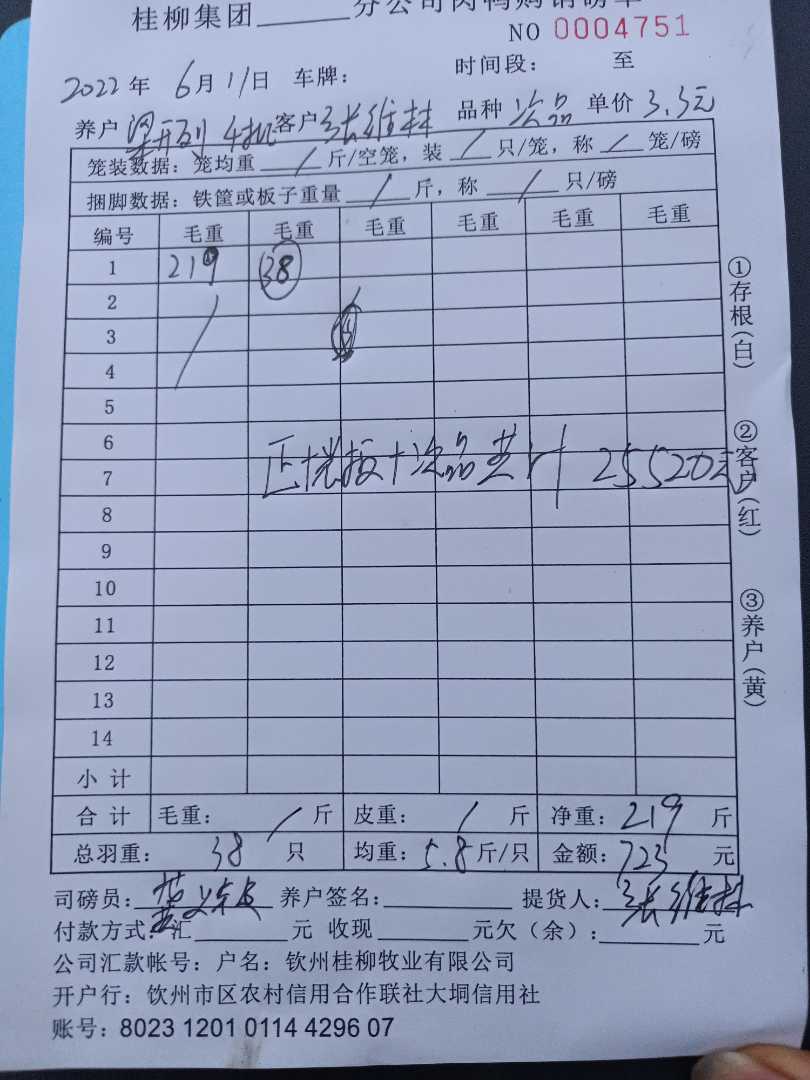 桂柳集团______分公司肉鸭购销磅单
NO 0004751
2022年 6月11日 车牌： 时间段： 至
养户 梁开列 4批 客户 张维林 品种 次品 单价 3.3元
笼装数据：笼均重 / 斤/空笼，装 / 只/笼，称 / 笼/磅
捆脚数据：铁筐或板子重量 / 斤，称 / 只/磅
编号 毛重 毛重 毛重 毛重 毛重 毛重
1 219 38
2
3
4
5
6
7
正 + 次品共计 25520元
8
9
10
11
12
13
14
小计
合计 毛重： / 斤 皮重： / 斤 净重：219 斤
总羽重： 38 只 均重：5.8 斤/只 金额：723 元
司磅员： 养户签名：______ 提货人：张维林
付款方式：汇______元 收现______元欠（余）：______元
公司汇款帐号：户名：钦州桂柳牧业有限公司
开户行：钦州市区农村信用合作联社大垌信用社
账号：8023 1201 0114 4296 07
①存根（白）
②客户（红）
③养户（黄）